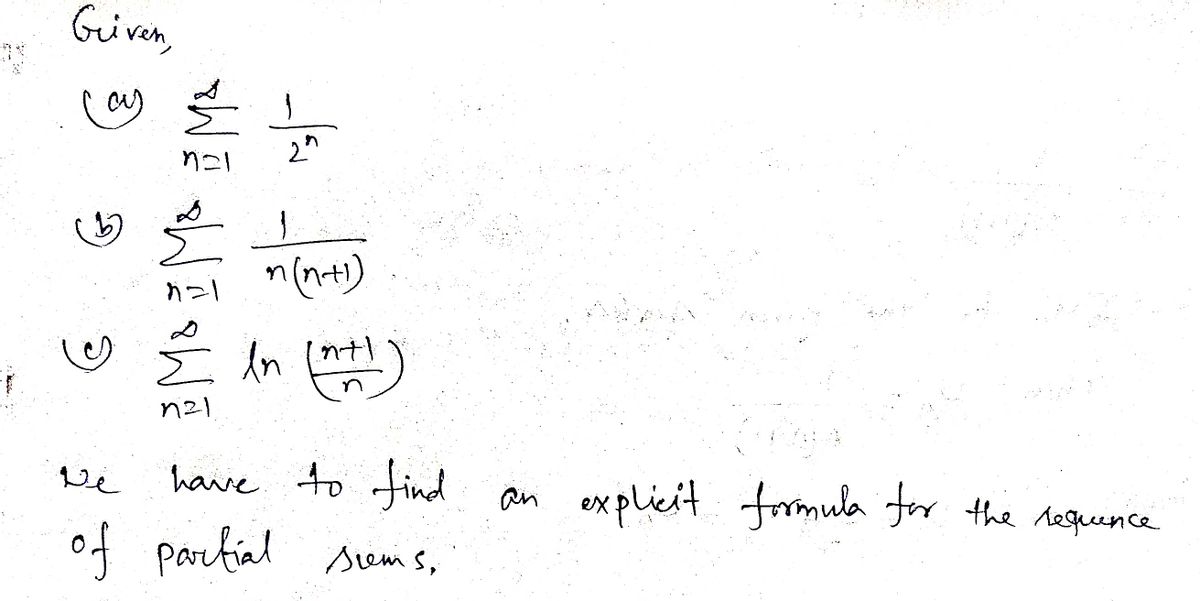 Given,
(a) ∞ Σ n=1 1/2ⁿ
(b) ∞ Σ n=1 1/n(n+1)
(c) ∞ Σ n=1 ln (n+1/n)
We have to find an explicit formula for the sequence
of partial sums.